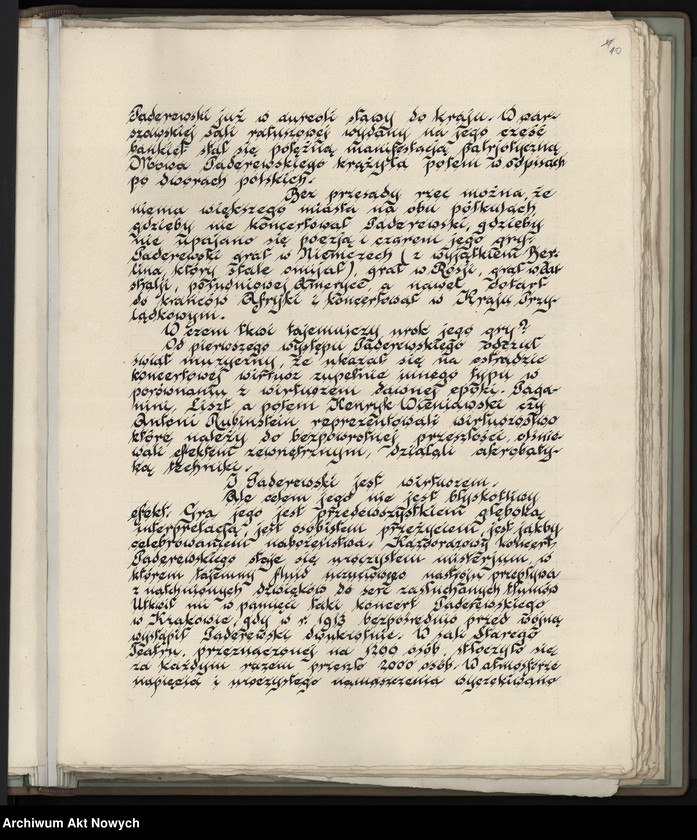 10
Paderewski już w aureoli sławy do kraju. W war-
szawskiej sali ratuszowej wydany na jego cześć
bankiet stał się potężną manifestacją patrjotyczną
Mowa Paderewskiego krążyła potem w odpisach
po dworach polskich.
Bez przesady rzec można, że
niema większego miasta na obu półkulach
gdzieby nie koncertował Paderewski, gdzieby
nie upajano się poezją i czarem jego gry.
Paderewski grał w Niemczech (z wyjątkiem Ber-
lina, który stale omijał), grał w Rosji, grał w Au-
stralji, południowej Ameryce, a nawet dotarł
do krańców Afryki i koncertował w Kraju Przy-
lądkowym.
W czem tkwi tajemniczy urok jego gry?
Od pierwszego występu Paderewskiego odczuł
świat muzyczny, że ukazał się na estradzie
koncertowej wirtuoz zupełnie innego typu w
porównaniu z wirtuozem dawnej epoki. Paga-
nini, Liszt, a potem Henryk Wieniawski czy
Antoni Rubinstein reprezentowali wirtuozostwo
które należy do bezpowrotnej przeszłości, olśnie-
wali efektem zewnętrznym, działali akrobaty-
ką techniki.
I Paderewski jest wirtuozem.
Ale celem jego nie jest błyskotliwy
efekt. Gra jego jest przedewszystkiem głęboką
interpretacją, jest osobistem przeżyciem, jest jakby
celebrowaniem nabożeństwa. Każdorazowy koncert
Paderewskiego staje się uroczystem misterjum, w
którem tajemny fluid uczuciowego nastroju przepływa
z natchnionych dźwięków do serc zasłuchanych tłumów
Utkwił mi w pamięci taki koncert Paderewskiego
w Krakowie, gdy w r. 1913 bezpośrednio przed wojną
wystąpił Paderewski dwukrotnie. W sali Starego
Teatru, przeznaczonej na 1200 osób, stłoczyło się
za każdym razem przeszło 2000 osób. W atmosferze
napięcia i uroczystego namaszczenia wyczekiwano
Archiwum Akt Nowych